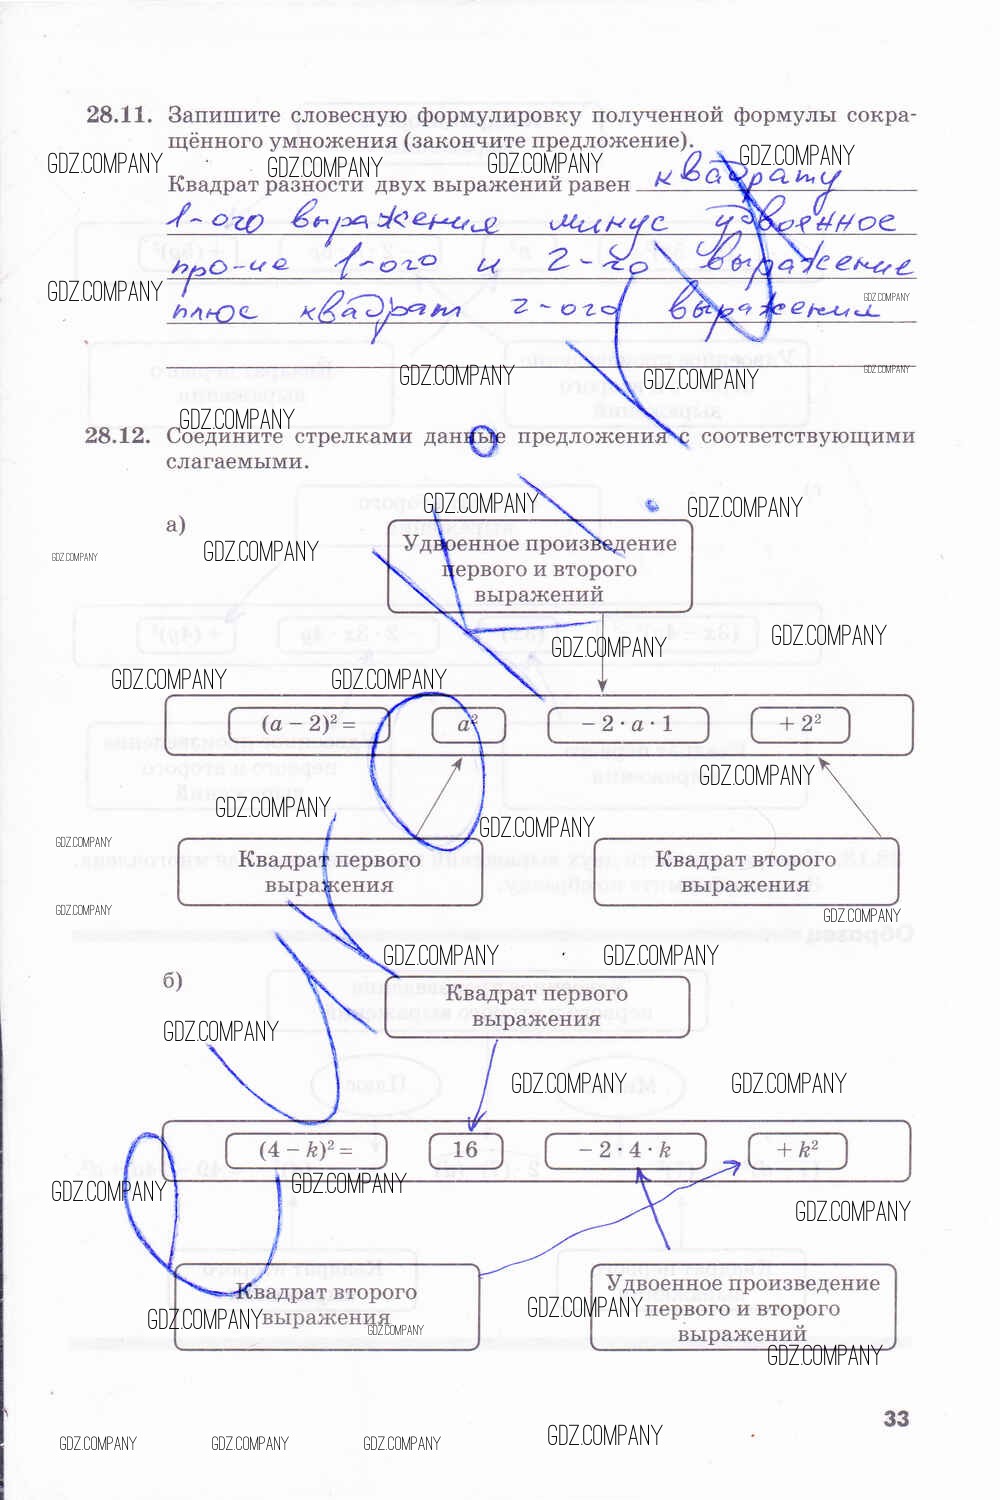 28.11. Запишите словесную формулировку полученной формулы сокра-
щённого умножения (закончите предложение).
GDZ.COMPANY GDZ.COMPANY GDZ.COMPANY GDZ.COMPANY
Квадрат разности двух выражений равен квадрату
1-ого выражения минус удвоенное
про-ие 1-ого и 2-го выражение
GDZ.COMPANY GDZ.COMPANY
плюс квадрат 2-ого выражения
GDZ.COMPANY GDZ.COMPANY GDZ.COMPANY
GDZ.COMPANY
28.12. Соедините стрелками данные предложения с соответствующими
слагаемыми.
GDZ.COMPANY GDZ.COMPANY
а)
GDZ.COMPANY GDZ.COMPANY
Удвоенное произведение
первого и второго
выражений
GDZ.COMPANY GDZ.COMPANY
GDZ.COMPANY GDZ.COMPANY
(a − 2)² = a² − 2 · a · 1 + 2²
GDZ.COMPANY
GDZ.COMPANY GDZ.COMPANY
GDZ.COMPANY
Квадрат первого
выражения
Квадрат второго
выражения
GDZ.COMPANY GDZ.COMPANY
GDZ.COMPANY GDZ.COMPANY
б)
Квадрат первого
выражения
GDZ.COMPANY
GDZ.COMPANY GDZ.COMPANY
(4 − k)² = 16 − 2 · 4 · k + k²
GDZ.COMPANY GDZ.COMPANY GDZ.COMPANY
Квадрат второго
выражения
Удвоенное произведение
первого и второго
выражений
GDZ.COMPANY GDZ.COMPANY GDZ.COMPANY
GDZ.COMPANY
33
GDZ.COMPANY GDZ.COMPANY GDZ.COMPANY GDZ.COMPANY